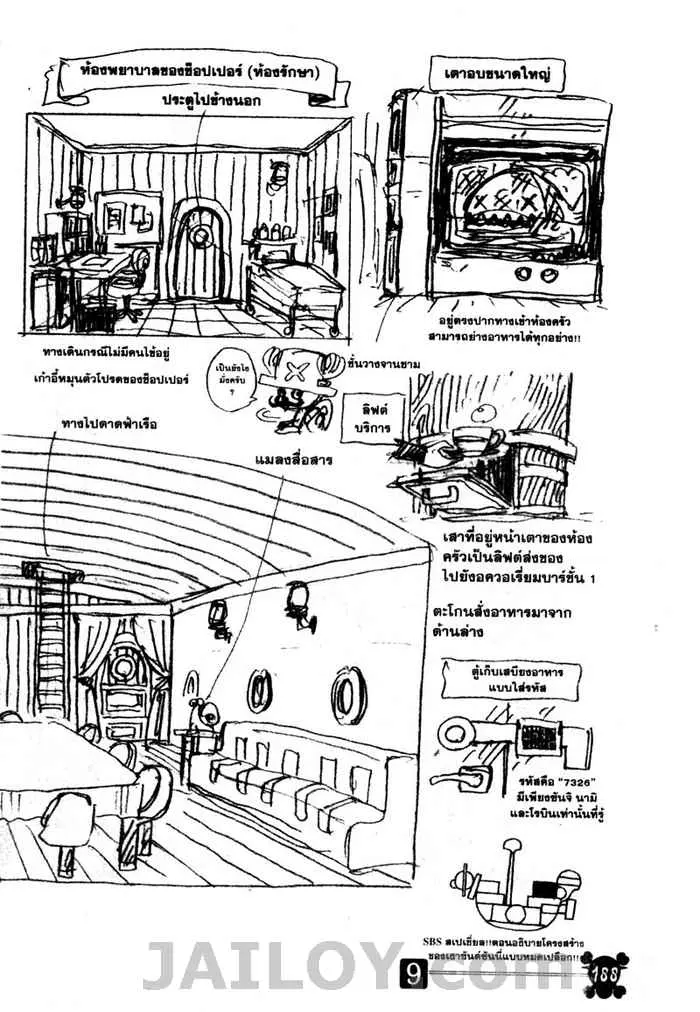 ห้องพยาบาลของช็อปเปอร์ (ห้องรักษา)
ประตูไปข้างนอก
เตาอบขนาดใหญ่
อยู่ตรงปากทางเข้าห้องครัว
สามารถย่างอาหารได้ทุกอย่าง!!
ทางเดินกรณีไม่มีคนไข้อยู่
เก้าอี้หมุนตัวโปรดของช็อปเปอร์
เป็นยังไง
มั่งครับ
?
ชั้นวางจานชาม
ลิฟต์
บริการ
ทางไปดาดฟ้าเรือ
แมลงสื่อสาร
เสาที่อยู่หน้าเตาของห้อง
ครัวเป็นลิฟต์ส่งของ
ไปยังอควอเรี่ยมบาร์ชั้น 1
ตะโกนสั่งอาหารมาจาก
ด้านล่าง
ตู้เก็บเสบียงอาหาร
แบบใส่รหัส
รหัสคือ "7326"
มีเพียงซันจิ นามิ
และโรบินเท่านั้นที่รู้
SBS สเปเชี่ยล!!ตอนอธิบายโครงสร้าง
ของเธาซันด์ซันนี่แบบหมดเปลือก!!
9
188
JAILOY.com